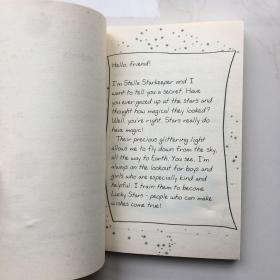 Hello, friend!
I'm Stella Starkeeper and I
want to tell you a secret. Have
you ever gazed up at the stars and
thought how magical they looked?
Well, you're right. Stars really do
have magic!
Their precious glittering light
allows me to fly down from the sky,
all the way to Earth. You see, I'm
always on the lookout for boys and
girls who are especially kind and
helpful. I train them to become
Lucky Stars - people who can make
wishes come true!